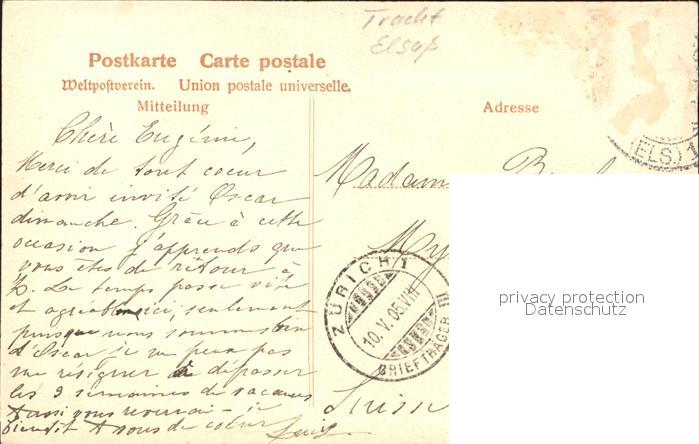 Tracht
Elsaß
Postkarte Carte postale
Weltpostverein. Union postale universelle.
Mitteilung
Adresse
Chère Eugénie,
Merci de tout coeur
d'avoir invité Oscar
dimanche. Grâce à cette
occasion j'apprends que
vous êtes de retour à
Z. Le temps passe vite
et agréablement ici, seulement
puisque nous sommes loin
d'Oscar je ne peux pas
me résigner à dépasser
les 3 semaines de vacances
Ainsi vous reverrai-je
bientôt A vous de coeur
Madame
My
Suisse
(ELS.) 1
ZÜRICH 1
10. V. 05. VIII
III
BRIEFTRÄGER
privacy protection
Datenschutz